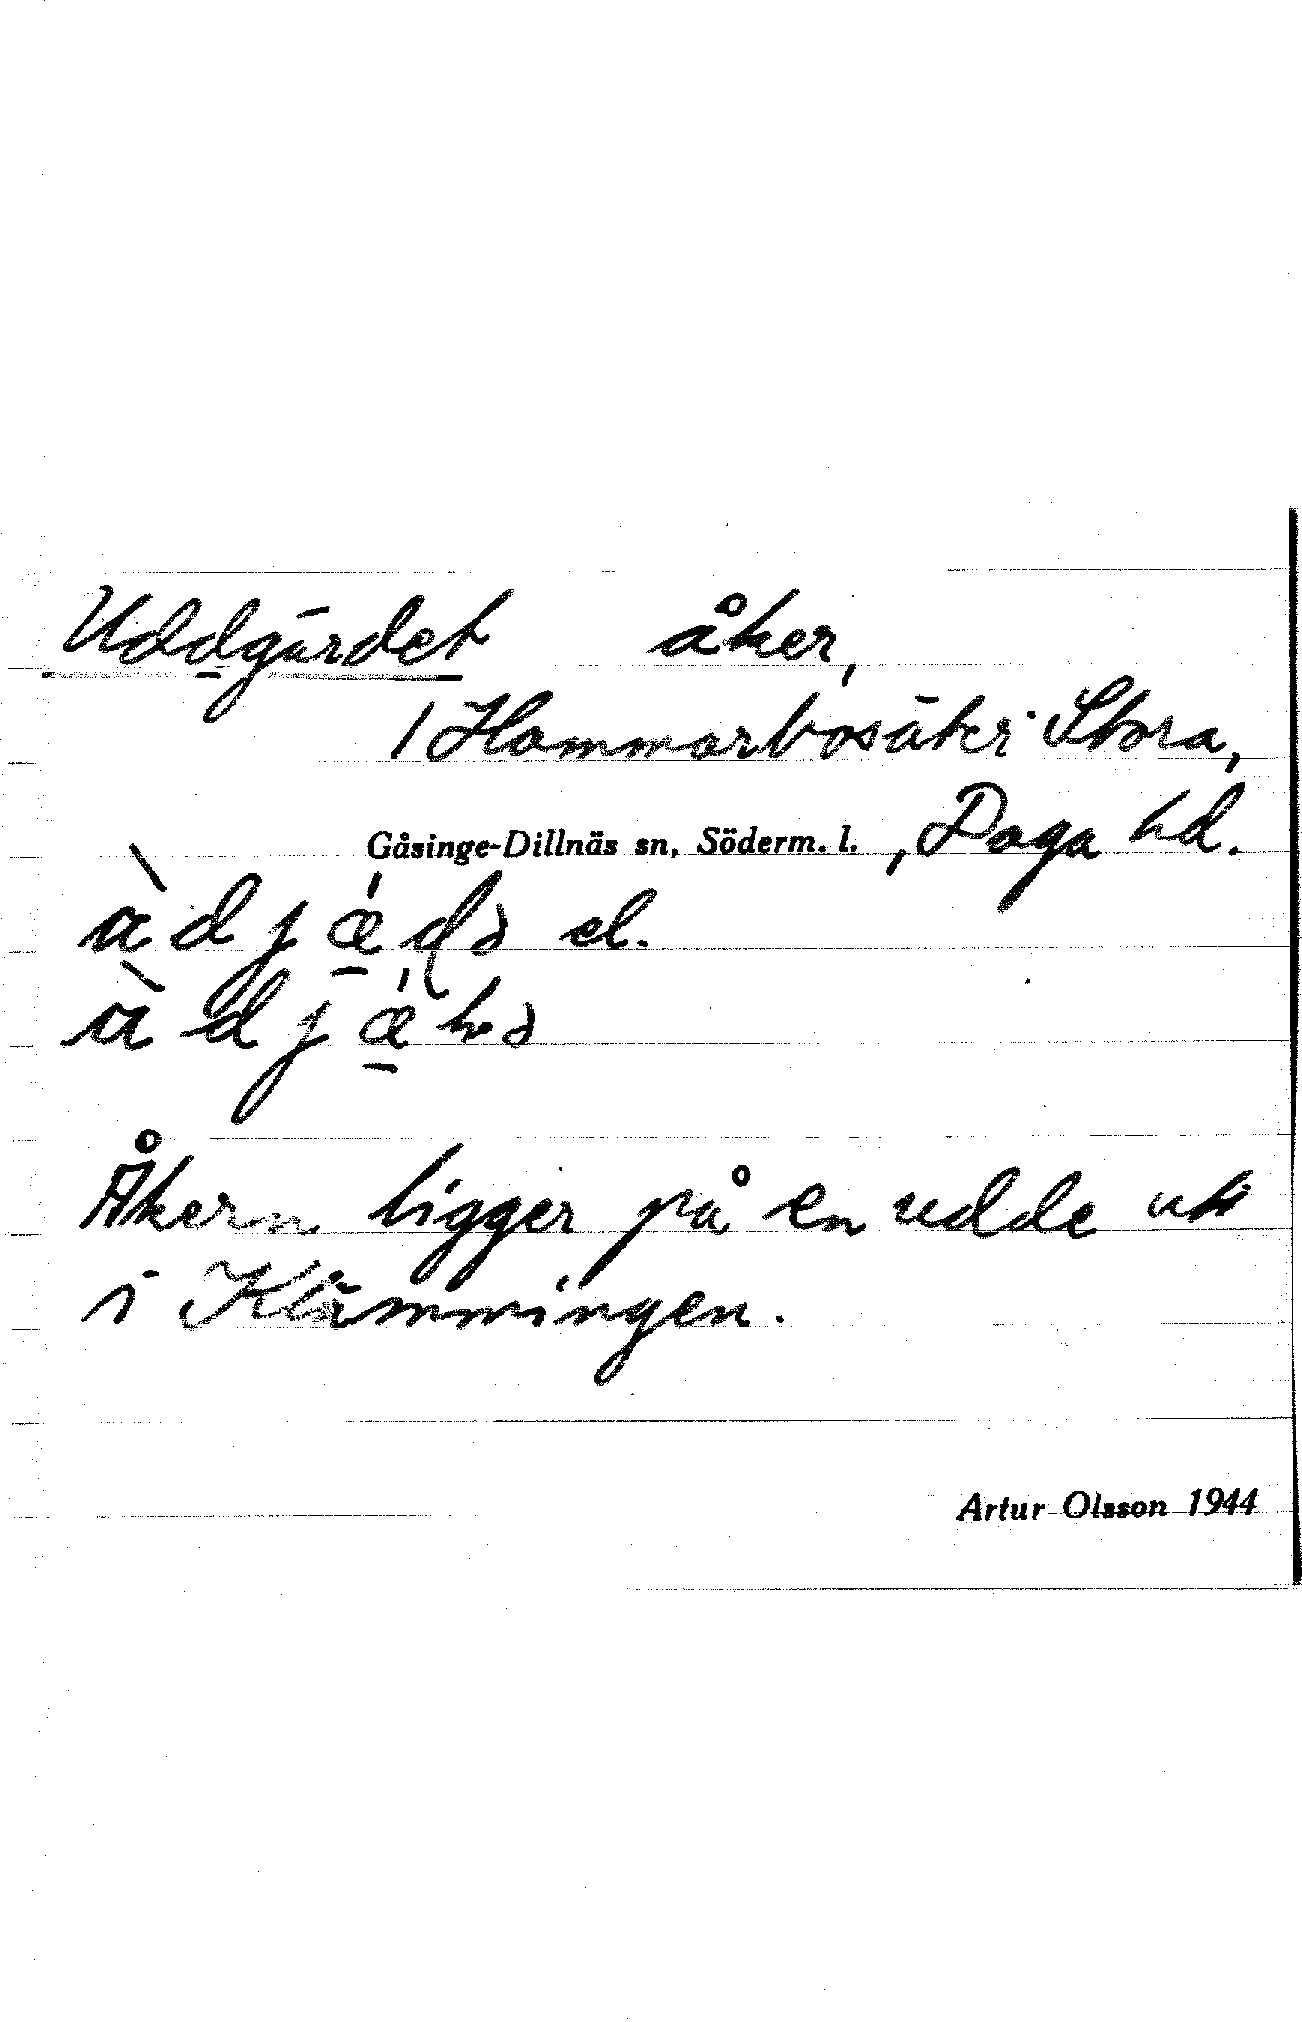 Uddgärdet åker,
1 Hammarbosäter Stora,
Gåsinge-Dillnäs sn, Söderm. l., Daga hd.
el.
Åkern ligger på en udde uti
i Klämmingen.
Artur Olsson 1944